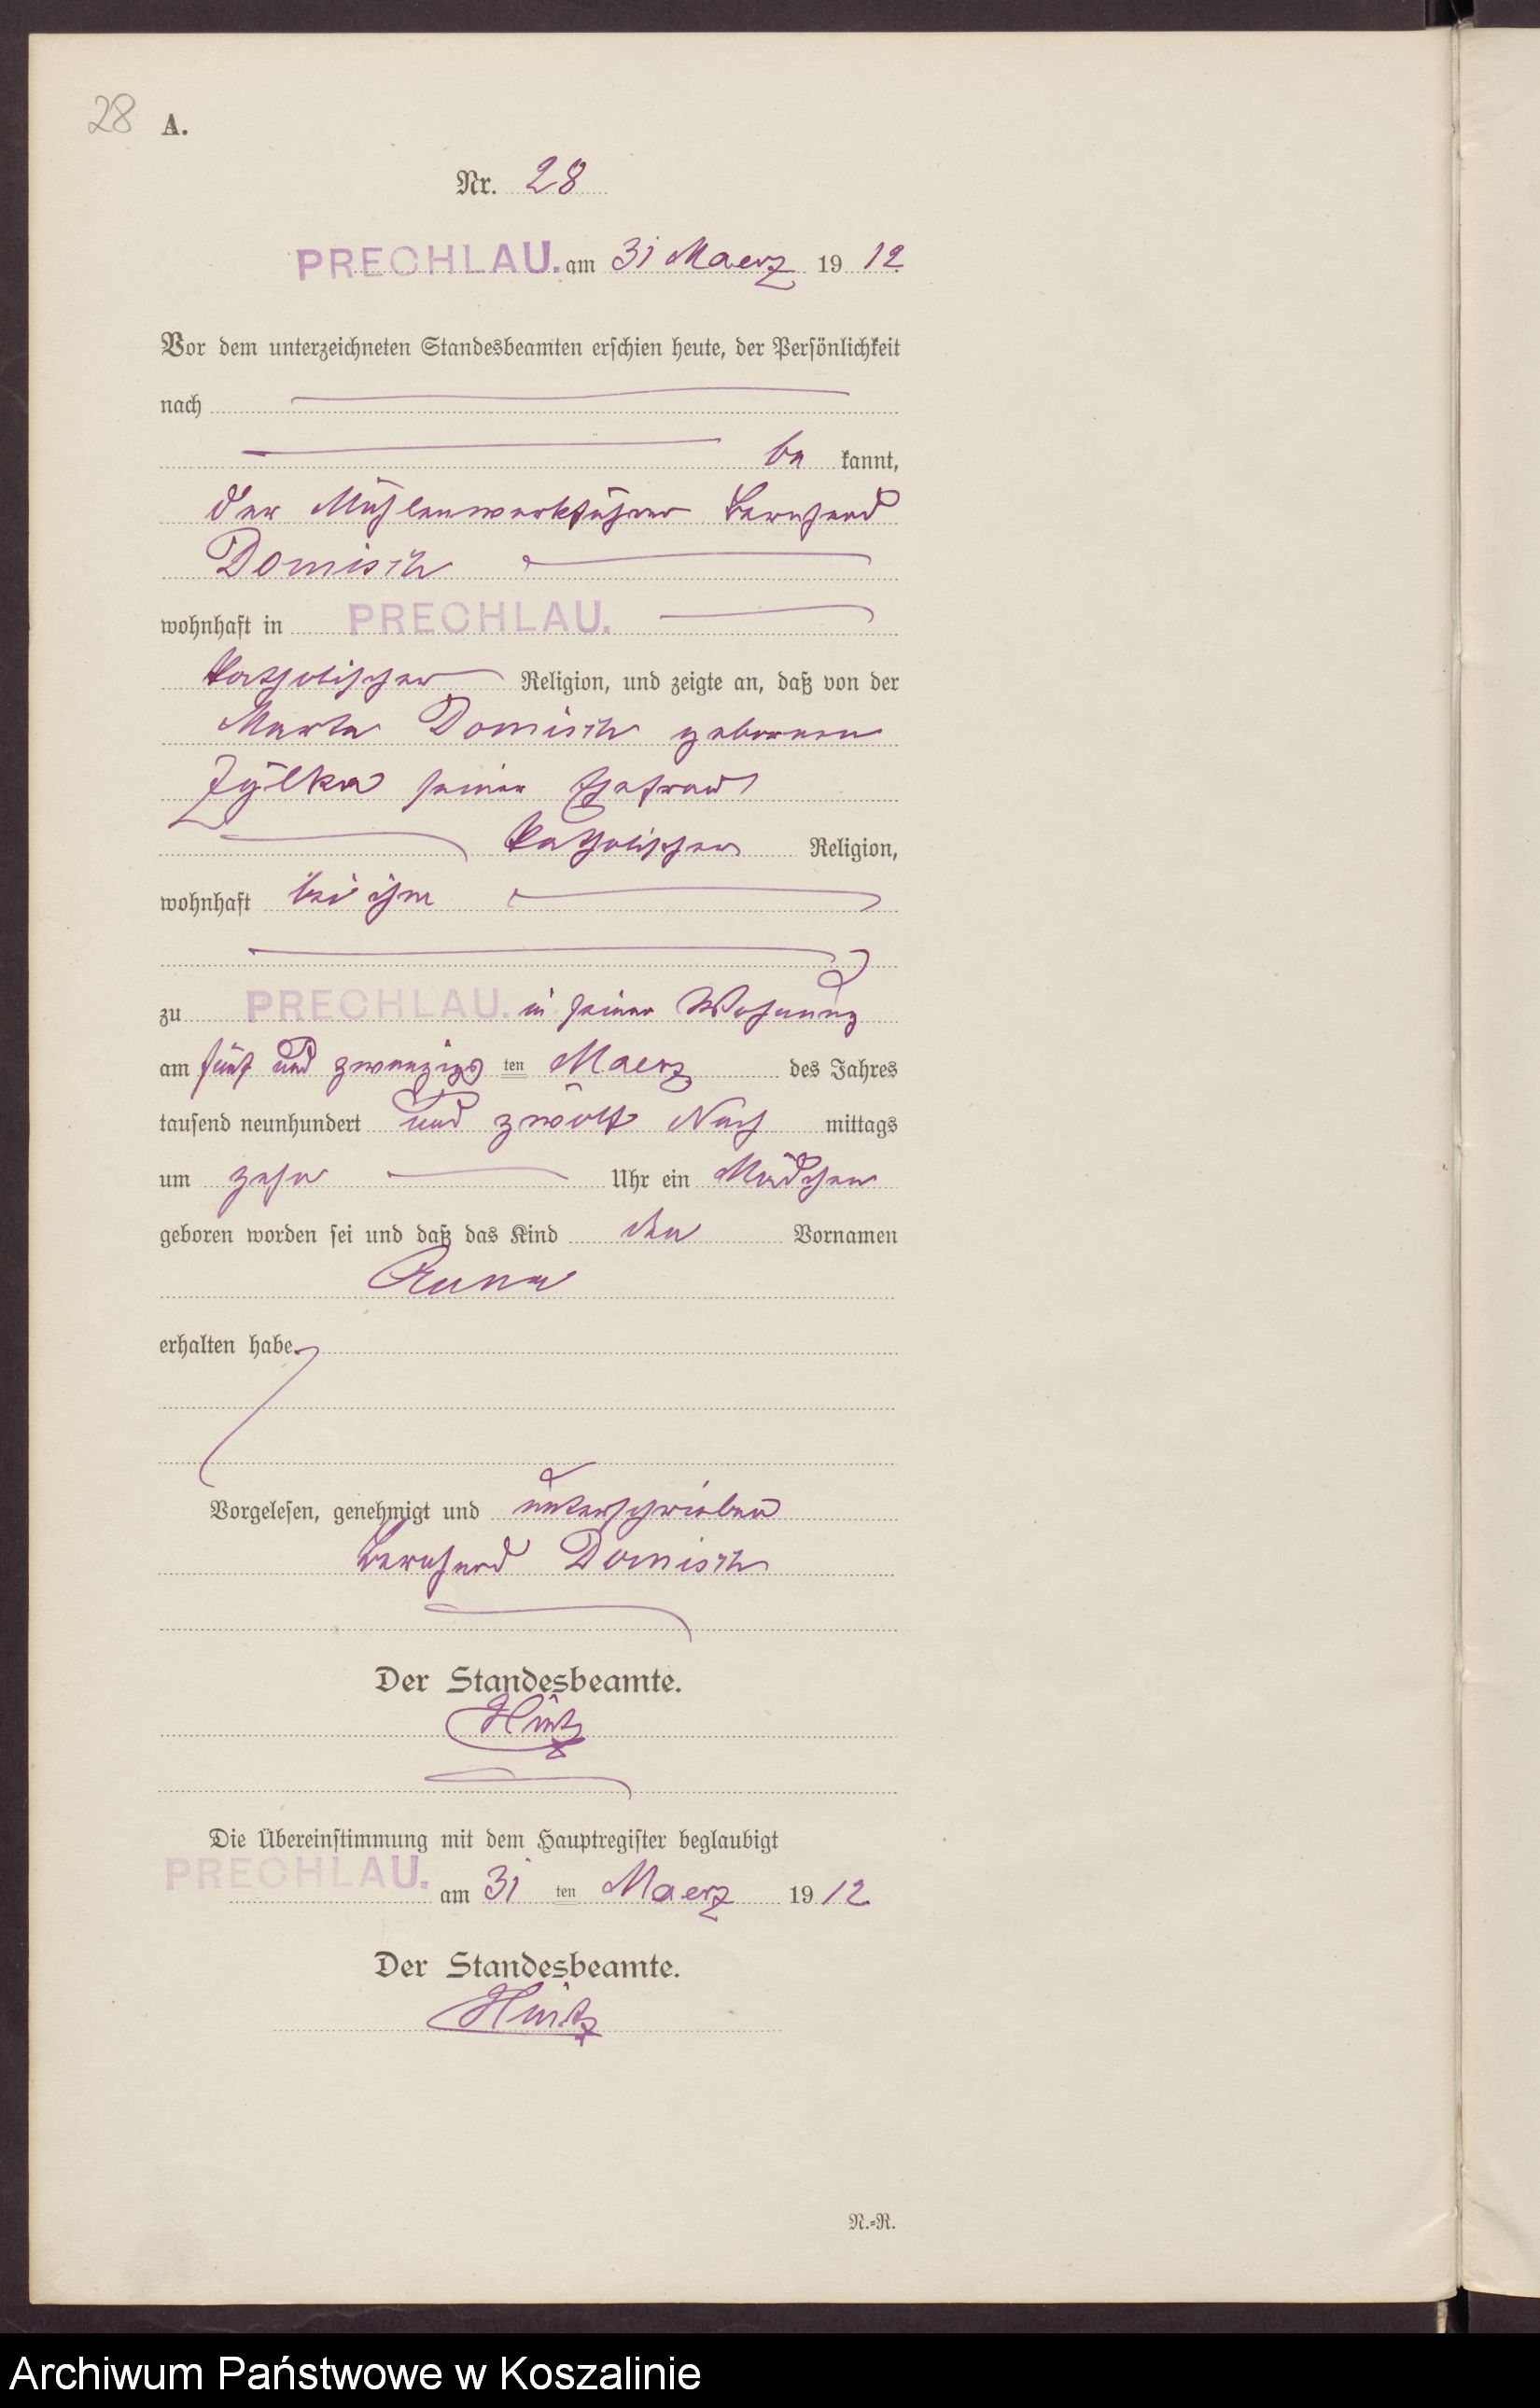 28 A.
Nr. 28
PRECHLAU. am 31 Maerz 19 12
Vor dem unterzeichneten Standesbeamten erschien heute, der Persönlichkeit
nach
be kannt,
der Mühlenwerkführer Bernhard
Domisch
wohnhaft in PRECHLAU.
katholischer Religion, und zeigte an, daß von der
Marta Domisch geborenen
Zylka seiner Ehefrau
katholischer Religion,
wohnhaft bei ihm
zu PRECHLAU. in seiner Wohnung
am fünf und zwanzigs ten Maerz des Jahres
tausend neunhundert und zwölf Nach mittags
um zehn Uhr ein Mädchen
geboren worden sei und daß das Kind den Vornamen
erhalten habe
Vorgelesen, genehmigt und unterschrieben
Bernhard Domisch
Der Standesbeamte.
Hintz
Die Übereinstimmung mit dem Hauptregister beglaubigt
PRECHLAU. am 31 ten Maerz 19 12
Der Standesbeamte.
Hintz
N.=R.
Archiwum Państwowe w Koszalinie